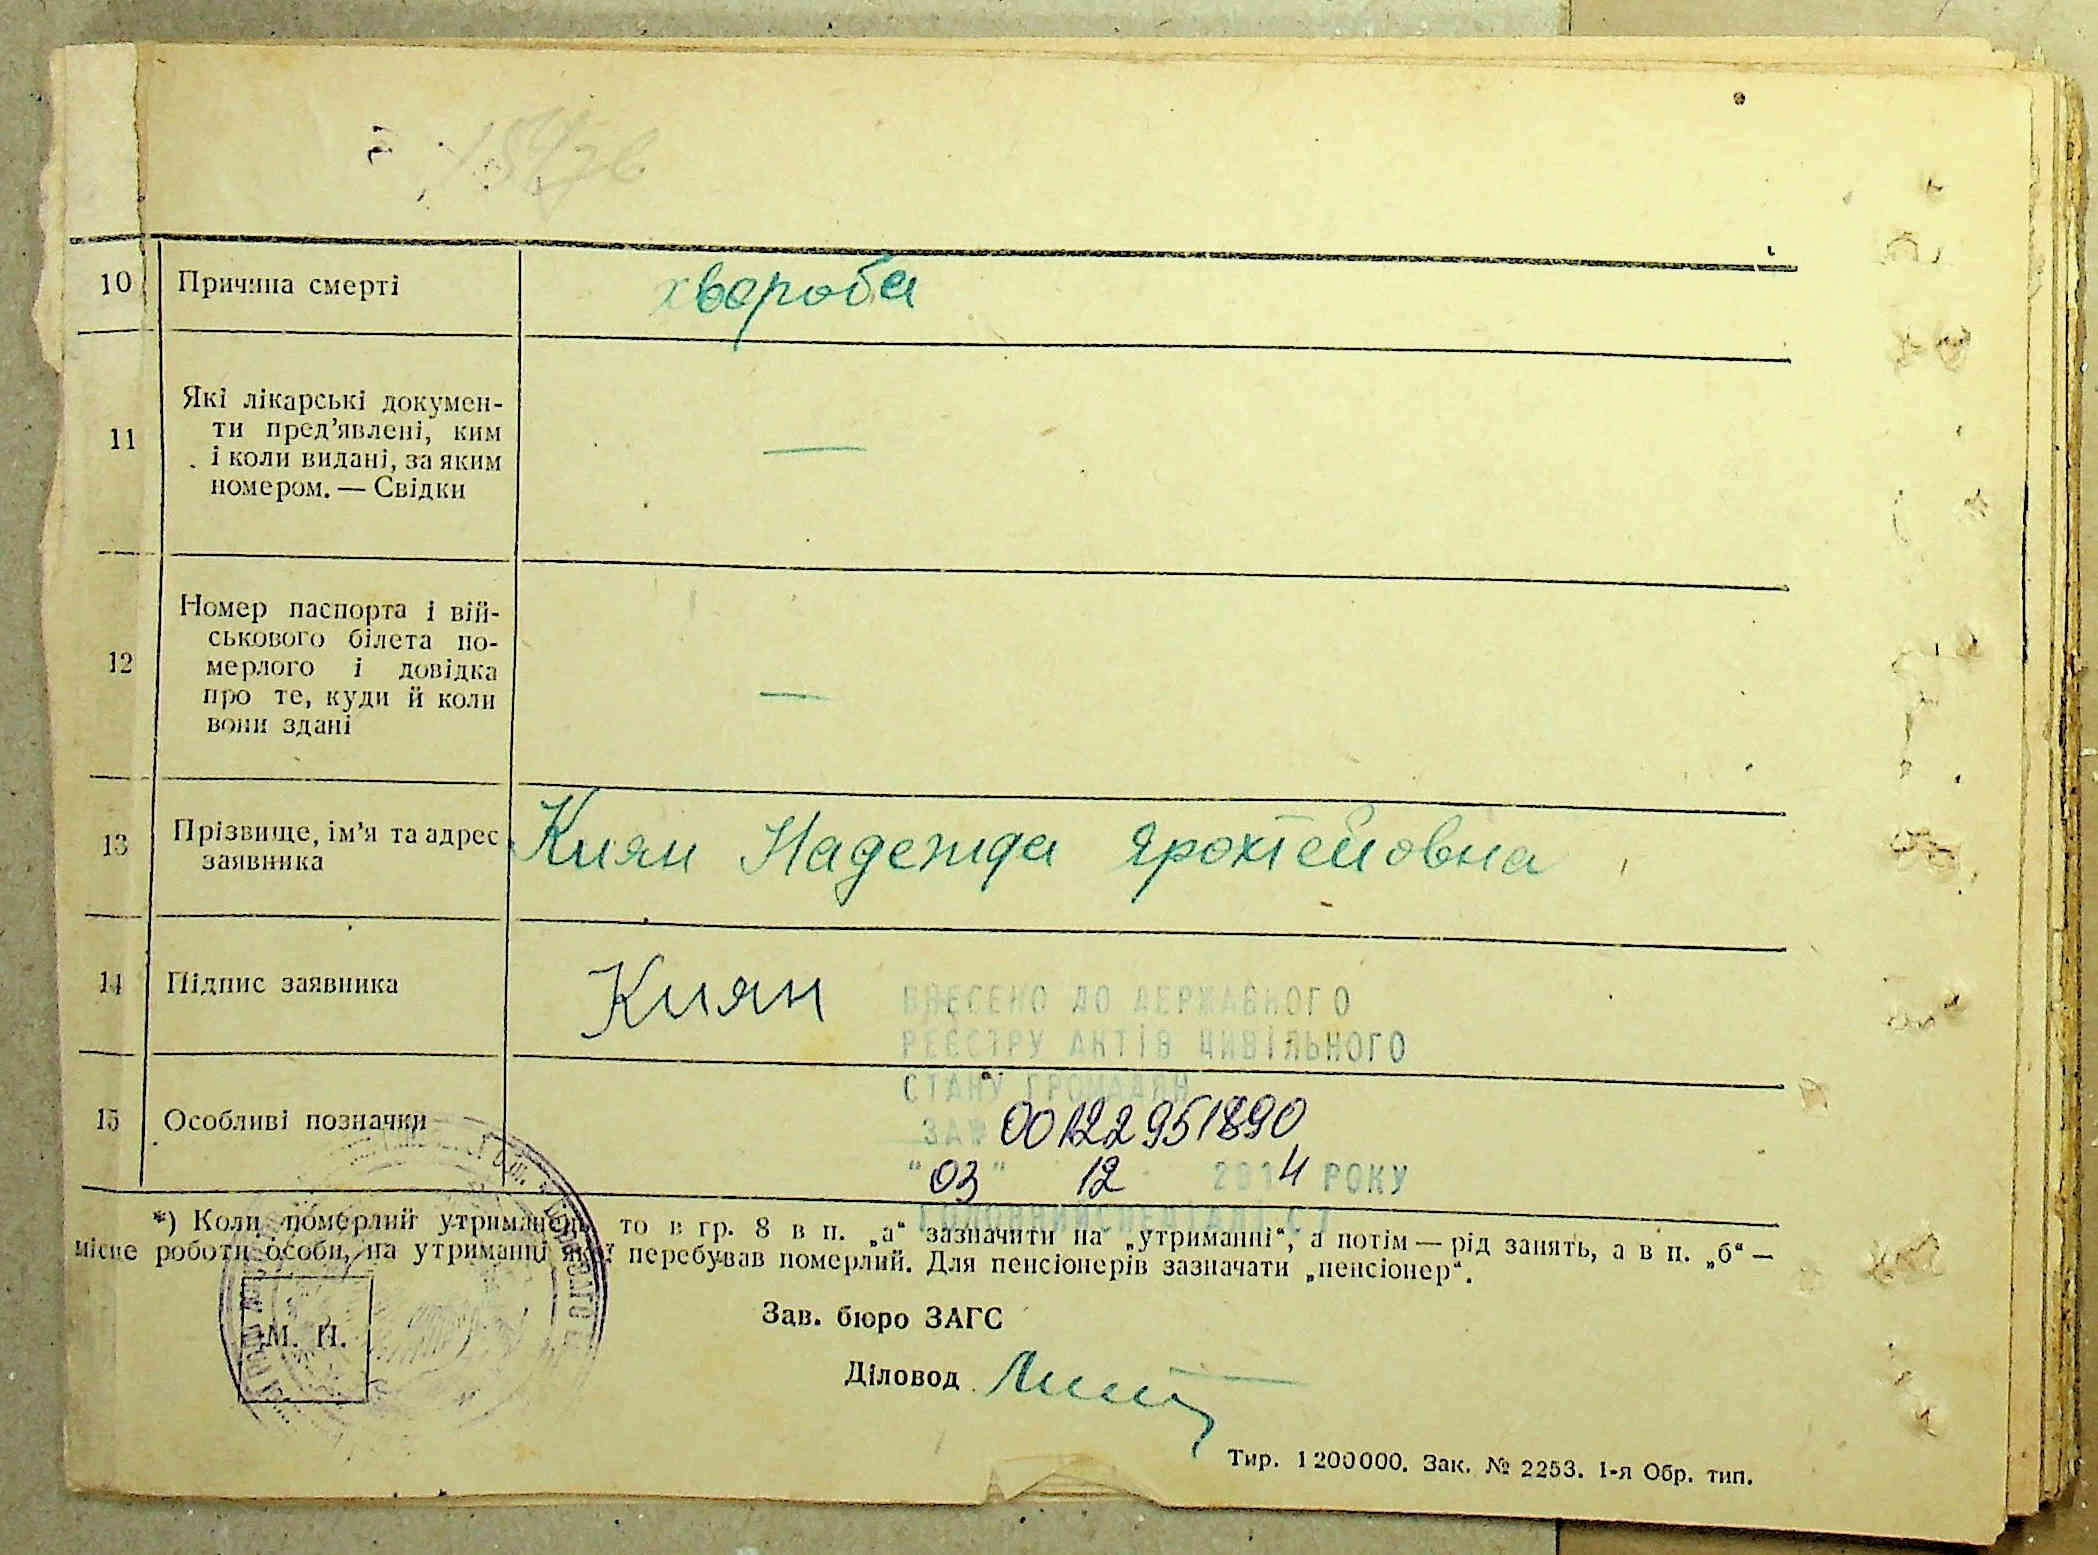 10 Причина смерті хвороба
11 Які лікарські докумен-
ти пред'явлені, ким
і коли видані, за яким
номером. — Свідки —
12 Номер паспорта і вій-
ськового білета по-
мерлого і довідка
про те, куди й коли
вони здані —
13 Прізвище, ім'я та адрес
заявника Киян Надежда
14 Підпис заявника Киян
ВНЕСЕНО ДО ДЕРЖАВНОГО
РЕЄСТРУ АКТІВ ЦИВІЛЬНОГО
СТАНУ ГРОМАДЯН
15 Особливі позначки
ЗА № 00122951890
"03" 12 2014 РОКУ
*) Коли померлий утриманець, то в гр. 8 в п. „а“ зазначити на „утриманні“, а потім — рід занять, а в п. „б“ —
місце роботи особи, на утриманні якої перебував померлий. Для пенсіонерів зазначати „пенсіонер“.
Зав. бюро ЗАГС
М. П.
Діловод
Тир. 1200000. Зак. № 2253. 1-я Обр. тип.